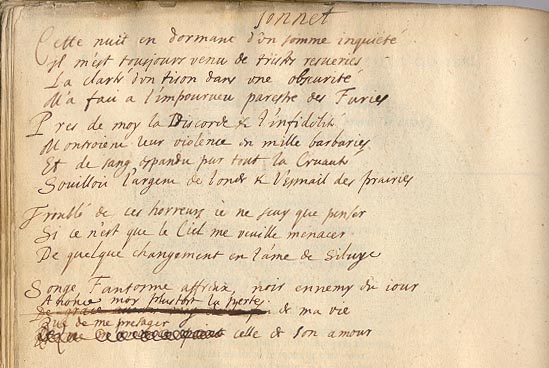 Sonnet
Cette nuit en dormant d'vn somme inquieté
Il m'est tousjours venu de tristes resueries
La clarté d'vn tison dans vne obscurité
M'a faict a l'impourueu parestre des Furies
Pres de moy la Discorde & l'infidelité
Montroient leur violence en mille barbaries
Et de sang espandu par tout la Cruauté
Souilloit l'argent de l'onde & l'esmail des prairies
Troublé de ces horreurs ie ne sçay que penser
Si ce n'est que le Ciel me veuille menacer
De quelque changement en l'ame de Siluye
Songe Fantosme affreux, noir ennemy du iour
Anonce moy plustost la perte
De grace de ma vie
Que de me presager
celle de son amour